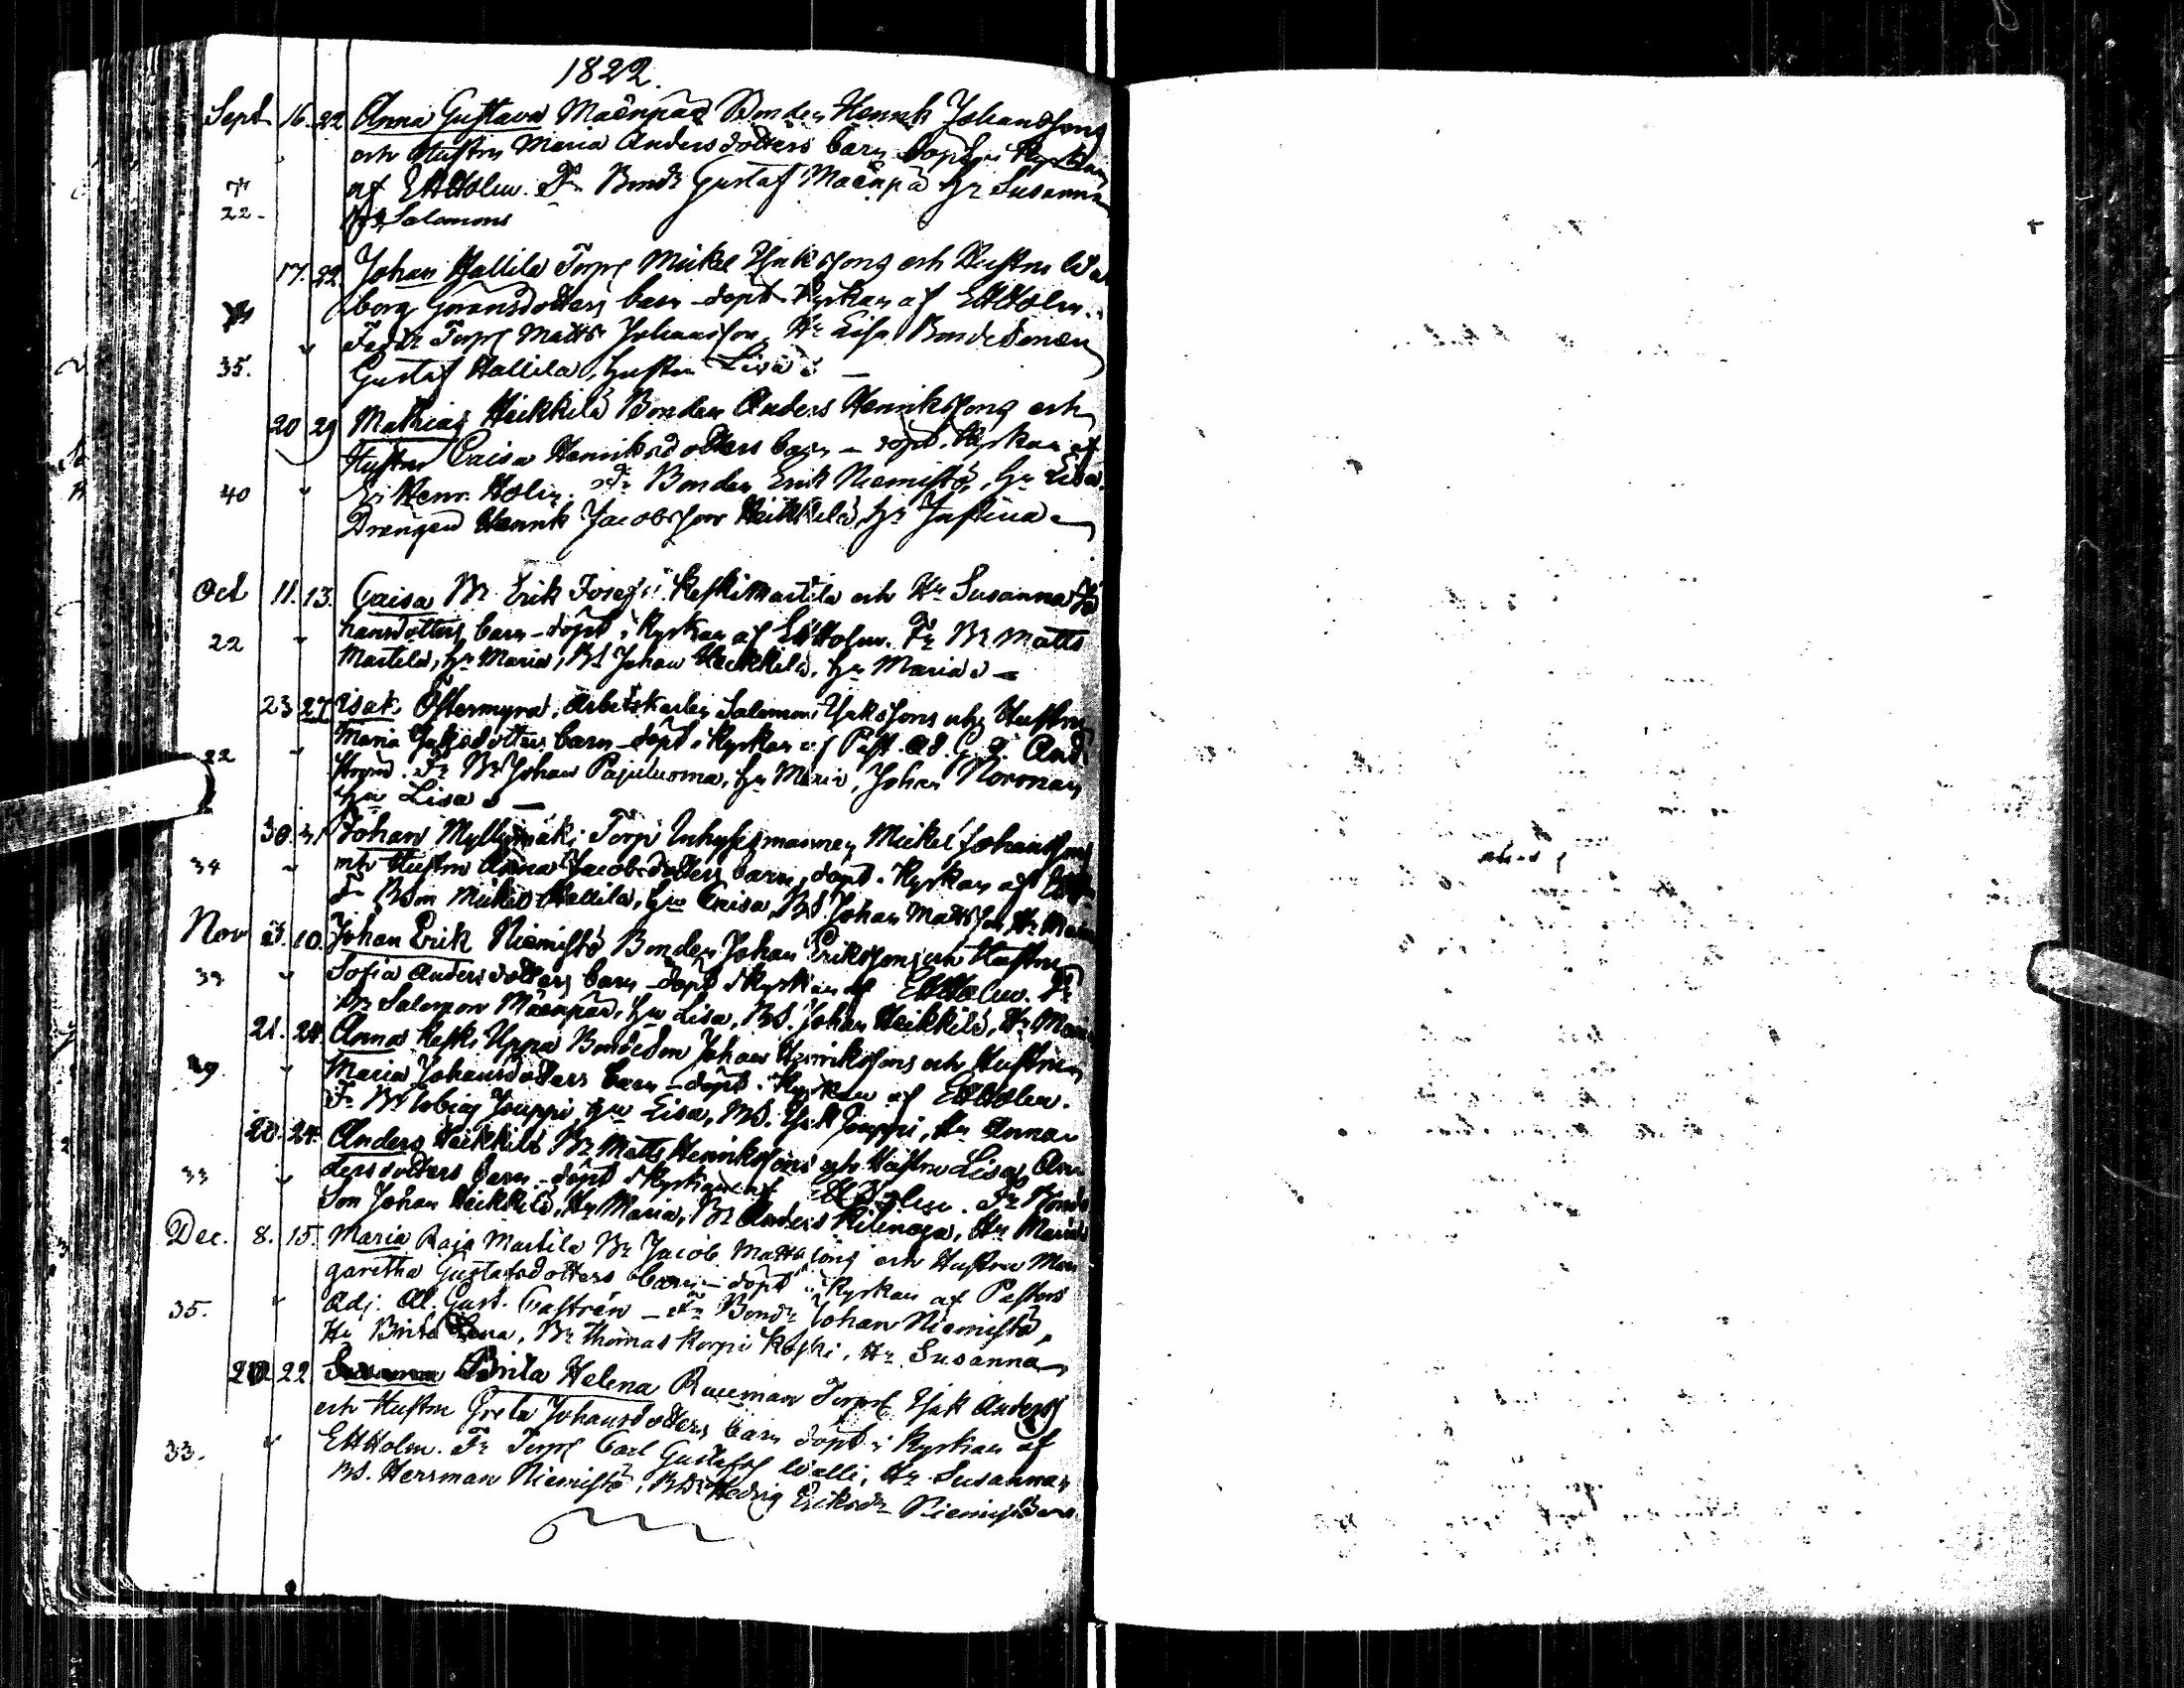 1822.
Sept 16. 22 Anna Gustava Mäenpää Bonden Henrik Johanssons
och Hustru Maria Andersdotters barn döpt i Kyrkan
af EHHolm. Fr Bondn Gustaf Mäenpä hu Susanna
22 Salomons
17. 22. Johan Hallila Torp Mickel Isakssons och Hustru Wal
borg Göransdotters barn döpt i Kyrkan af EHHolm.
Torp Matts Johansson, Hu Lisa Bondesonen
35. Gustaf Hallila, hustru Lisa
20 29 Mathias Heikkilä Bonden Anders Henrikssons och
Hustru Caisa Henriksdotters barn döpt i Kyrkan af
40 Er Henr. Holm. Fr Bonden Erik Niemistö, hu Lisa.
Drengen Henrik Jacobsson Heikkilä, hu Justina
Oct 11. 13. Caisa Br Erik Josefs Keskimartila och Hu Susanna Jo
22 hansdotters barn döpt i Kyrkan af EHHolm. Fr Br Matts
Martila, hu Maria, BS Johan Heikkilä, hu Maria
23 27 Isak Östermyra, Arbetskarlen Salomon Isakssons och Hustru
Maria Jakosdotters barn döpt i Kyrkan af Past. Ad. G. A. And
22 Fr Br Johan Pajuluoma, hu Maria, Johan Noronan
hu Lisa
30. 31 Johan Myllymäki Torp Inhysesmannen Mickel Johanssons
34 och Hustru Anna Jacobsdotters barn, döpt i Kyrkan af
Fr Bon Mickel Hallila, hu Caisa, BS Johan Mattsson, Hu Maria
Nov 3. 10. Johan Erik Niemistö Bonden Johan Erikssons och Hustru
39 Sofia Andersdotters barn döpt i Kyrkan af EHHolm. Fr
Br Salomon Mäenpää, hu Lisa, BS. Johan Heikkilä, Hu Maria
21. 24 Anna Keski Uppa Bondeson Johan Henrikssons och Hustrun
29 Maria Johansdotters barn döpt i Kyrkan af EHHolm.
Fr Br Tobias Jouppi, hu Lisa, BS. Isak Jouppi, Hu Anna
20. 24. Anders Heikkilä Br Matts Henrikssons och Hustru Lisa An
33 dersdotters barn döpt i Kyrkan af EHHolm. Fr Bonde
Son Johan Heikkilä, Hu Maria, Br Anders Hilinoja, Hu Maria
Dec. 8. 15. Maria Raja Martila Br Jacob Mattssons och Hustru Mar
garetha Gustafsdotters barn döpt i Kyrkan af Pastors
35. Adj. Al. Gust. Castrén Fr Bondn Johan Niemistö,
Hu Brita Lena, Br Thomas Korpi koski, Hu Susanna
22 Brita Helena Ruuman Torp Isak Anderss
och Hustru Greta Johansdotters barn döpt i Kyrkan af
33. EHHolm. Fr Torp Carl Gustafss Walli, Hu Susanna,
BS. Herrman Niemistö, BDr Hedvig Eriksdr Niemistö